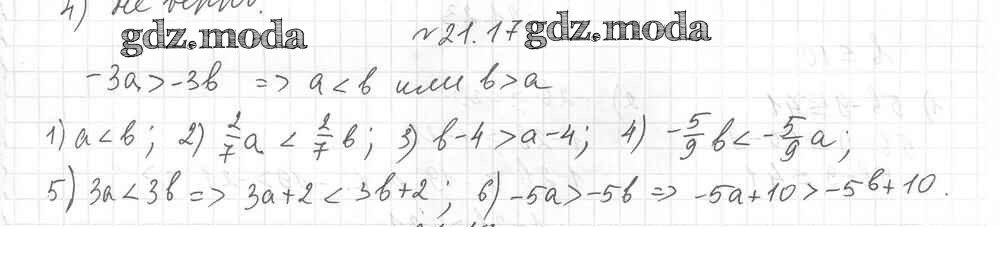 4) не верно.
gdz.moda №21.17 gdz.moda
-3a > -3b => a < b или b > a
1) a < b; 2) 2/7 a < 2/7 b; 3) b-4 > a-4; 4) -5/9 b < -5/9 a;
5) 3a < 3b => 3a+2 < 3b+2; 6) -5a > -5b => -5a+10 > -5b+10.